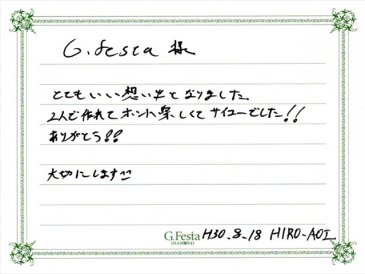 G.festa 様
とてもいい想い出となりました
2人で作れてホント楽しくてサイコーでした!!
ありがとう!!
大切にします
G.Festa
DIAMOND
H30_8_18 HIRO-AOI